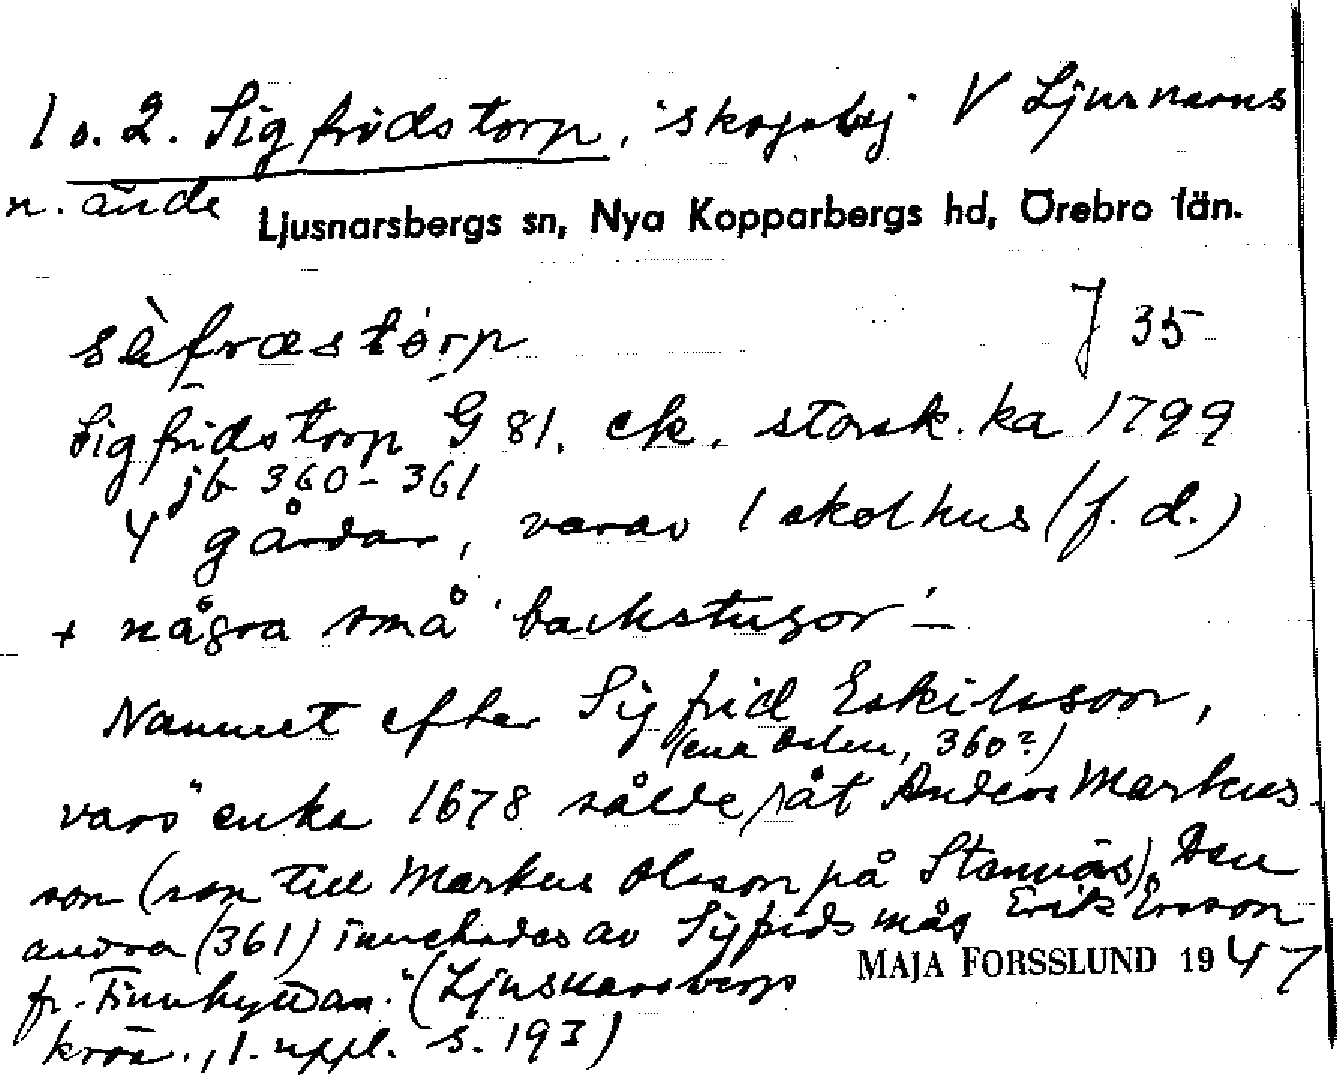 1 o. 2. Sigfridstorp, 'skogsby' V Ljusnarns
n. ände
Ljusnarsbergs sn, Nya Kopparbergs hd, Örebro län.
sèfrœstórp J 35
Sigfridstorp G 81. ek. storsk. ka 1799
jb 360-361
4 gårdar, varav 1 skolhus (f. d.)
+ några små 'backstugor' –
Namnet efter Sigfrid Eskilsson,
(ena delen, 360?)
vars "enka 1678 sålde, åt Anders Markus-
son (son till Markus Olsson på Stennäs). Den
andra (361) innehades av Sigfrids måg Erik Ersson
fr. Finnhyttan." (Ljusnarsbergs
krön., 1. uppl. s. 193)
MAJA FORSSLUND 1947